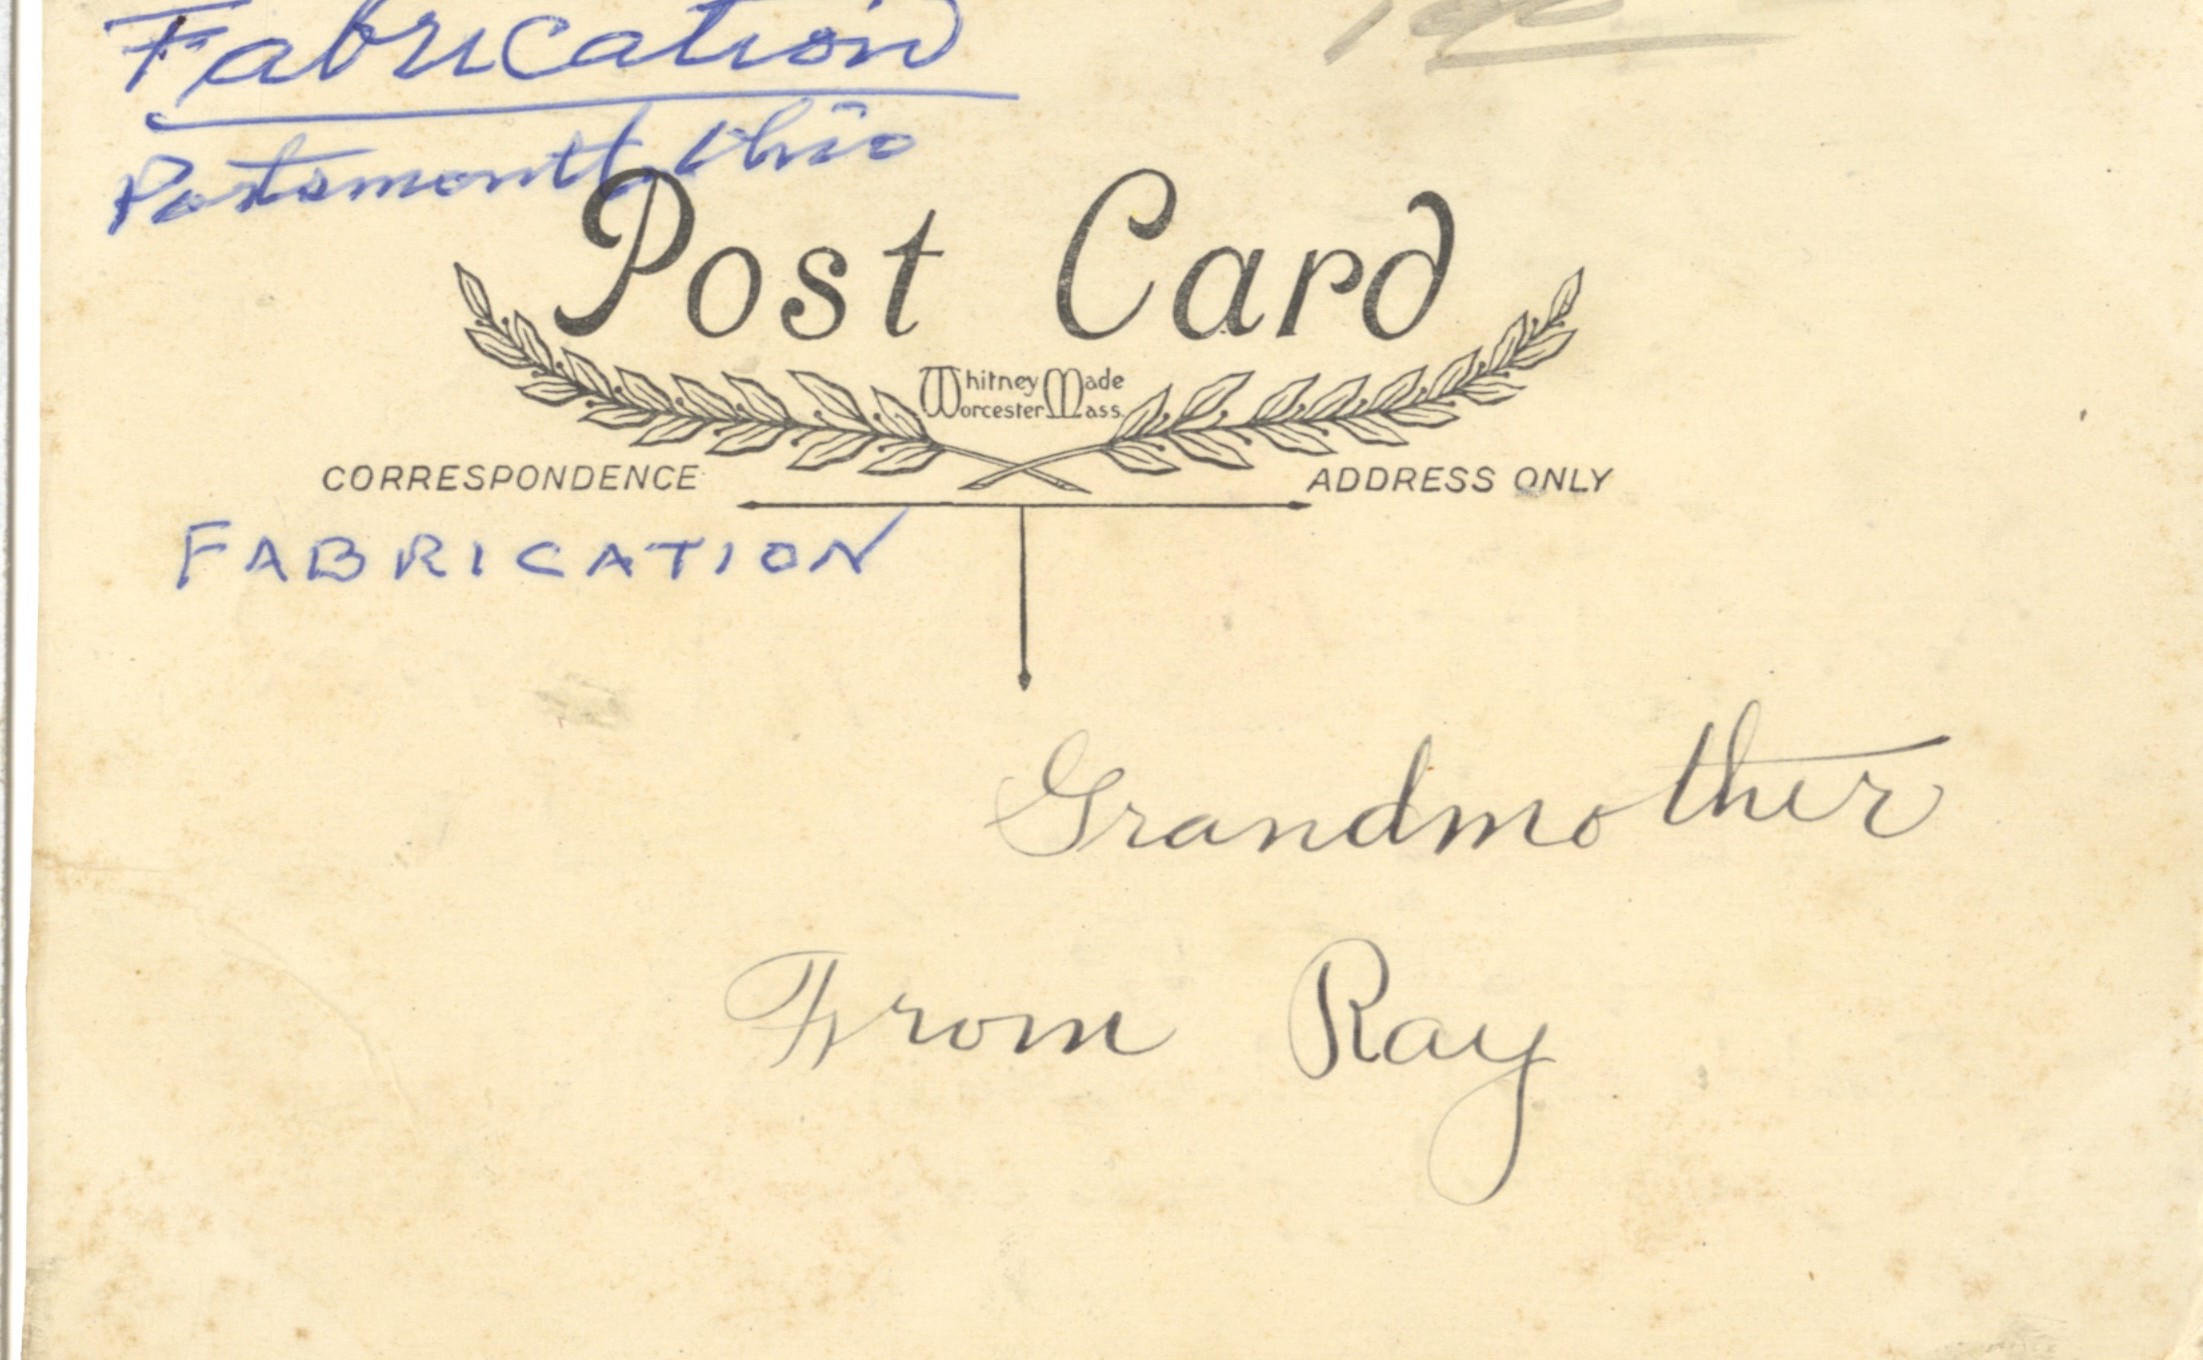 Fabrication
Portsmouth, Ohio
Post Card
Whitney Made
Worcester Mass.
CORRESPONDENCE
ADDRESS ONLY
FABRICATION
Grandmother
From Ray